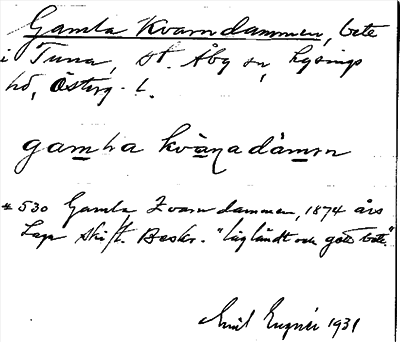 Gamla Kvarndammen, bete
i Tuna, St. Åby sn, Lysings
hd, Österg. l.
gamla kvànadámen
# 530 Gamla Kvarndammen, 1874 års
Laga Skift. Beskr. "Lågländt och god bete."
Emil 1931